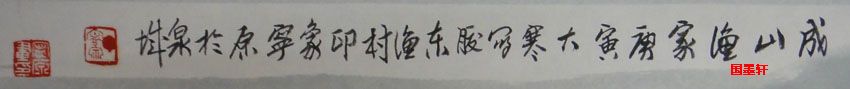 成山渔家庚寅大寒写胶东渔村印象寧原於泉城
国墨轩